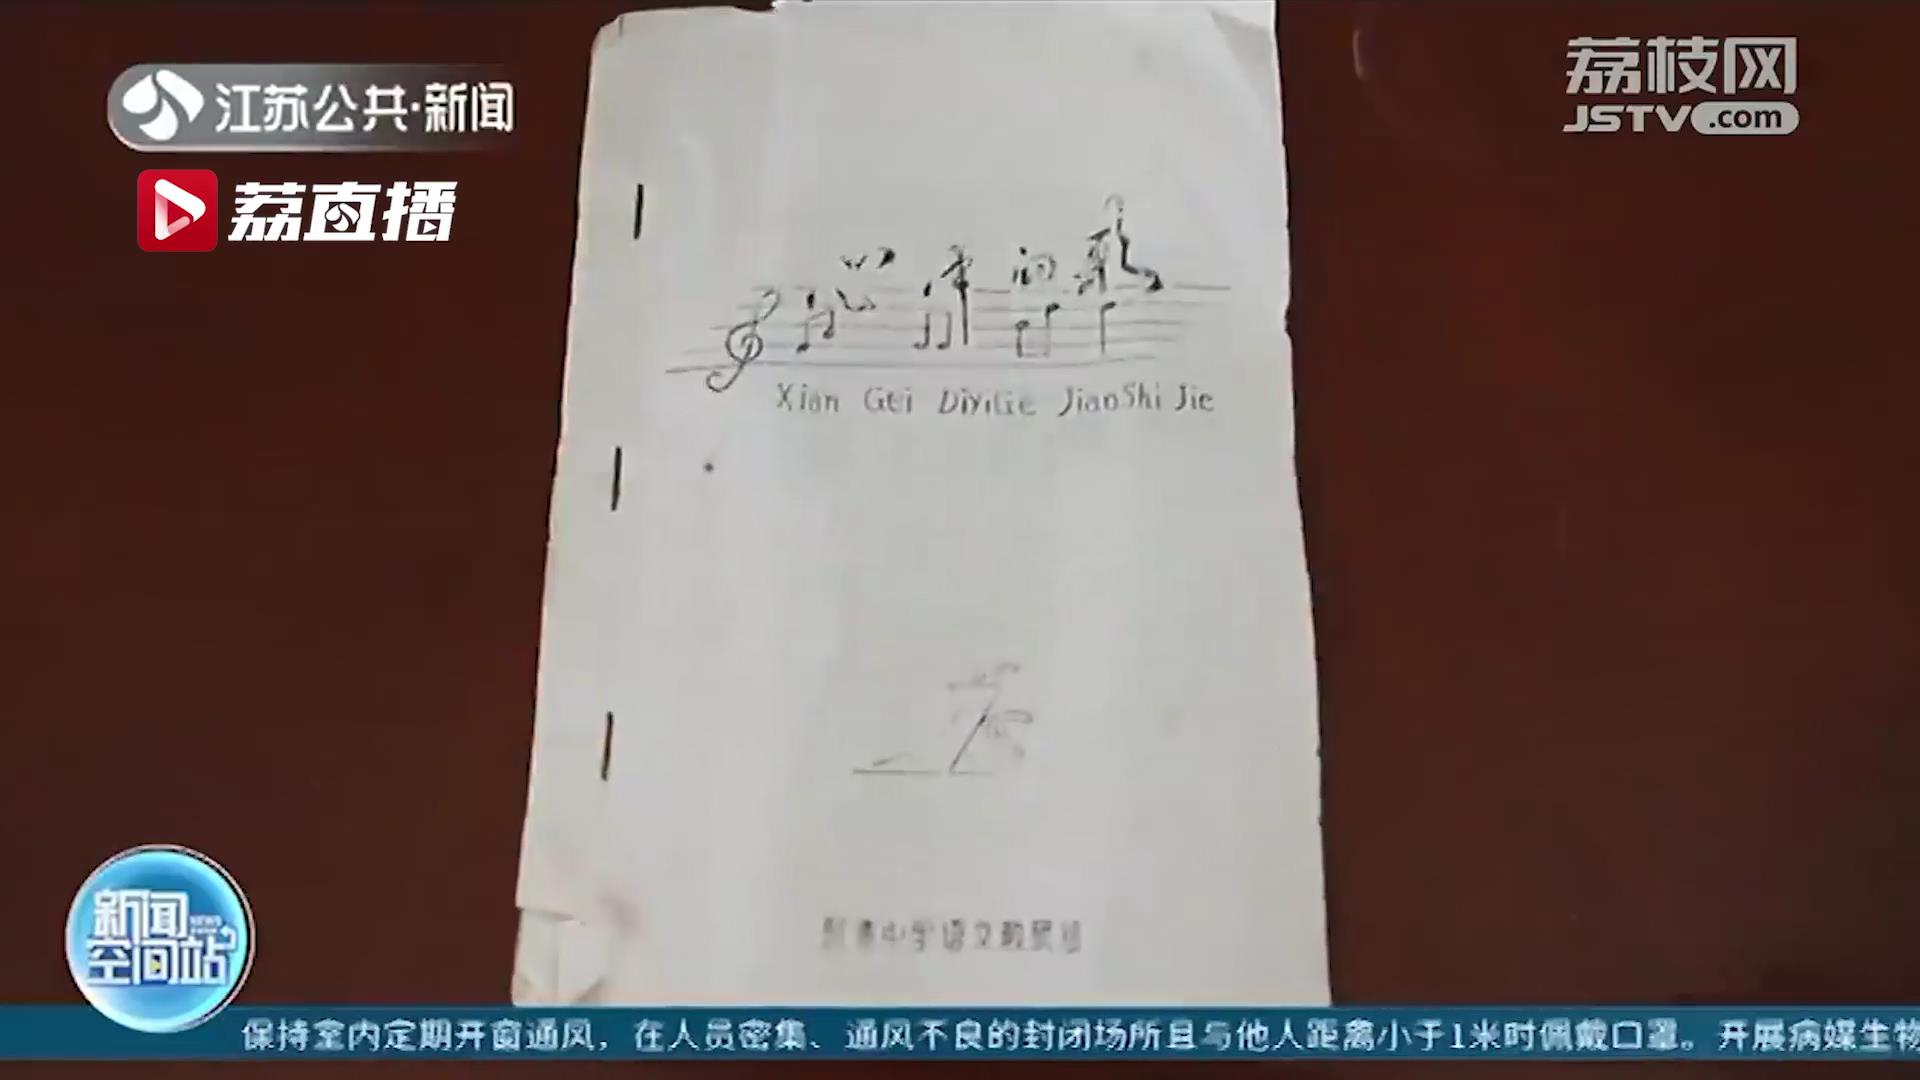 江苏公共·新闻
荔枝网
JSTV.com
荔直播
心声的歌
Xian Gei DiYiGe JiaoShi Jie
中学语文教研组
新闻
NEWS
空间站
保持室内定期开窗通风，在人员密集、通风不良的封闭场所且与他人距离小于1米时佩戴口罩。开展病媒生物